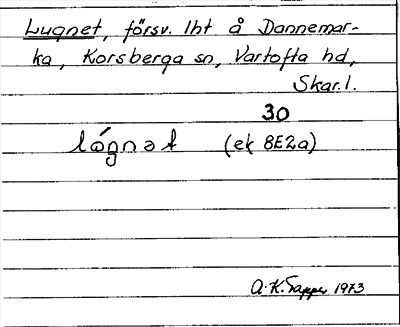 Lugnet, försv. lht å Dannemar-
ka, Korsberga sn, Vartofta hd,
Skar.l.
30
lógnət (ek 8E2a)
A.K. Tapper 1973